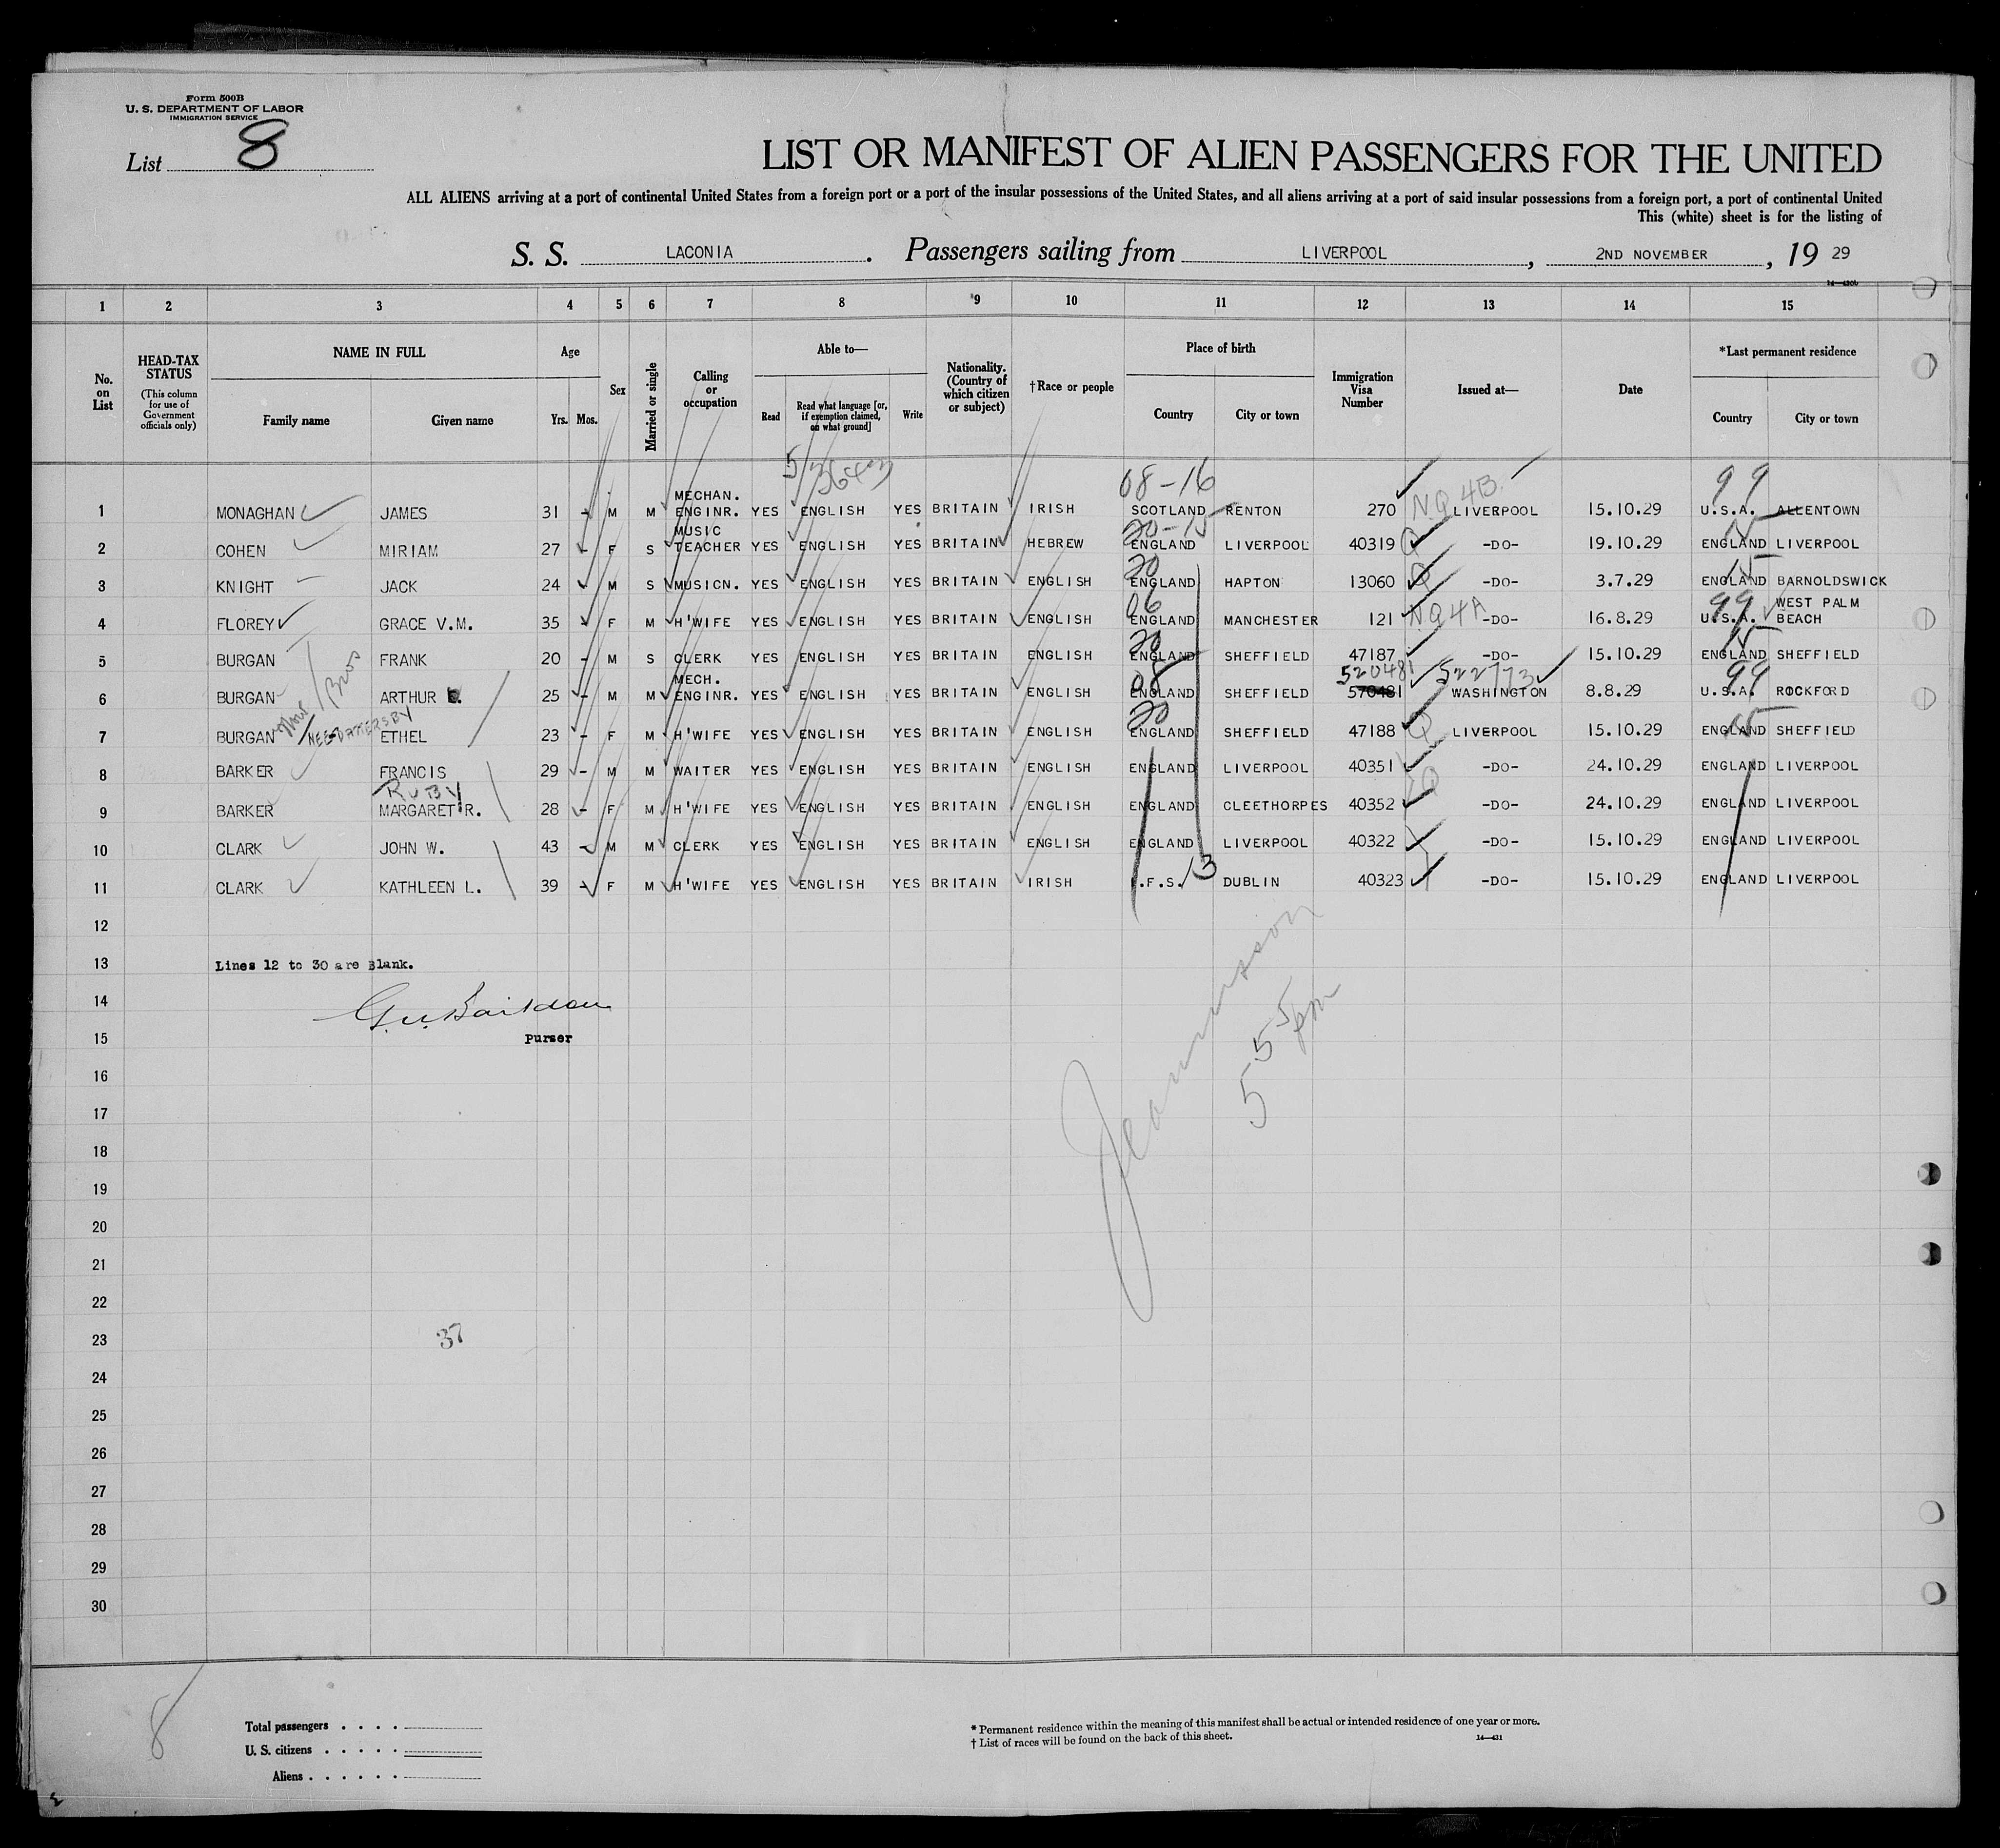 Form 500B
U. S. DEPARTMENT OF LABOR
IMMIGRATION SERVICE
List 8
LIST OR MANIFEST OF ALIEN PASSENGERS FOR THE UNITED
ALL ALIENS arriving at a port of continental United States from a foreign port or a port of the insular possessions of the United States, and all aliens arriving at a port of said insular possessions from a foreign port, a port of continental United
This (white) sheet is for the listing of
S. S. LACONIA. Passengers sailing from LIVERPOOL, 2ND NOVEMBER, 19 29
14—430b
1 2 3 4 5 6 7 8 9 10 11 12 13 14 15
No. on List
HEAD-TAX STATUS
(This column for use of Government officials only)
NAME IN FULL
Family name Given name
Age
Yrs. Mos.
Sex
Married or single
Calling or occupation
Able to—
Read
Read what language [or, if exemption claimed, on what ground]
Write
Nationality. (Country of which citizen or subject)
†Race or people
Place of birth
Country City or town
Immigration Visa Number
Issued at—
Date
*Last permanent residence
Country City or town
5/36403 08-16 NQ4B 99
1 MONAGHAN JAMES 31 - M M MECHAN. ENGINR. YES ENGLISH YES BRITAIN IRISH SCOTLAND RENTON 270 LIVERPOOL 15.10.29 U.S.A. ALLENTOWN
20-15 15
2 COHEN MIRIAM 27 - F S MUSIC TEACHER YES ENGLISH YES BRITAIN HEBREW ENGLAND LIVERPOOL 40319 Q -DO- 19.10.29 ENGLAND LIVERPOOL
20 15
3 KNIGHT JACK 24 - M S MUSICN. YES ENGLISH YES BRITAIN ENGLISH ENGLAND HAPTON 13060 Q -DO- 3.7.29 ENGLAND BARNOLDSWICK
06 NQ4A 99
4 FLOREY GRACE V.M. 35 - F M H'WIFE YES ENGLISH YES BRITAIN ENGLISH ENGLAND MANCHESTER 121 -DO- 16.8.29 U.S.A. WEST PALM BEACH
20 15
5 BURGAN FRANK 20 - M S CLERK YES ENGLISH YES BRITAIN ENGLISH ENGLAND SHEFFIELD 47187 -DO- 15.10.29 ENGLAND SHEFFIELD
Bros 08 520481 522773 99
6 BURGAN ARTHUR 25 - M M MECH. ENGINR. YES ENGLISH YES BRITAIN ENGLISH ENGLAND SHEFFIELD 570481 WASHINGTON 8.8.29 U.S.A. ROCKFORD
NEE 20 15
7 BURGAN ETHEL 23 - F M H'WIFE YES ENGLISH YES BRITAIN ENGLISH ENGLAND SHEFFIELD 47188 Q LIVERPOOL 15.10.29 ENGLAND SHEFFIELD
8 BARKER FRANCIS 29 - M M WAITER YES ENGLISH YES BRITAIN ENGLISH ENGLAND LIVERPOOL 40351 -DO- 24.10.29 ENGLAND LIVERPOOL
RUBY Q
9 BARKER MARGARET R. 28 - F M H'WIFE YES ENGLISH YES BRITAIN ENGLISH ENGLAND CLEETHORPES 40352 -DO- 24.10.29 ENGLAND LIVERPOOL
10 CLARK JOHN W. 43 - M M CLERK YES ENGLISH YES BRITAIN ENGLISH ENGLAND LIVERPOOL 40322 -DO- 15.10.29 ENGLAND LIVERPOOL
11 CLARK KATHLEEN L. 39 - F M H'WIFE YES ENGLISH YES BRITAIN IRISH .F.S. 13 DUBLIN 40323 -DO- 15.10.29 ENGLAND LIVERPOOL
12
13 Lines 12 to 30 are Blank.
14
15 Purser
16
17
18
19
20
21
22
23 37
24
25
26
27
28
29
30
5 55 pm
8
Total passengers . . . .
U. S. citizens . . . . .
Aliens . . . . . .
* Permanent residence within the meaning of this manifest shall be actual or intended residence of one year or more.
† List of races will be found on the back of this sheet.
14—431